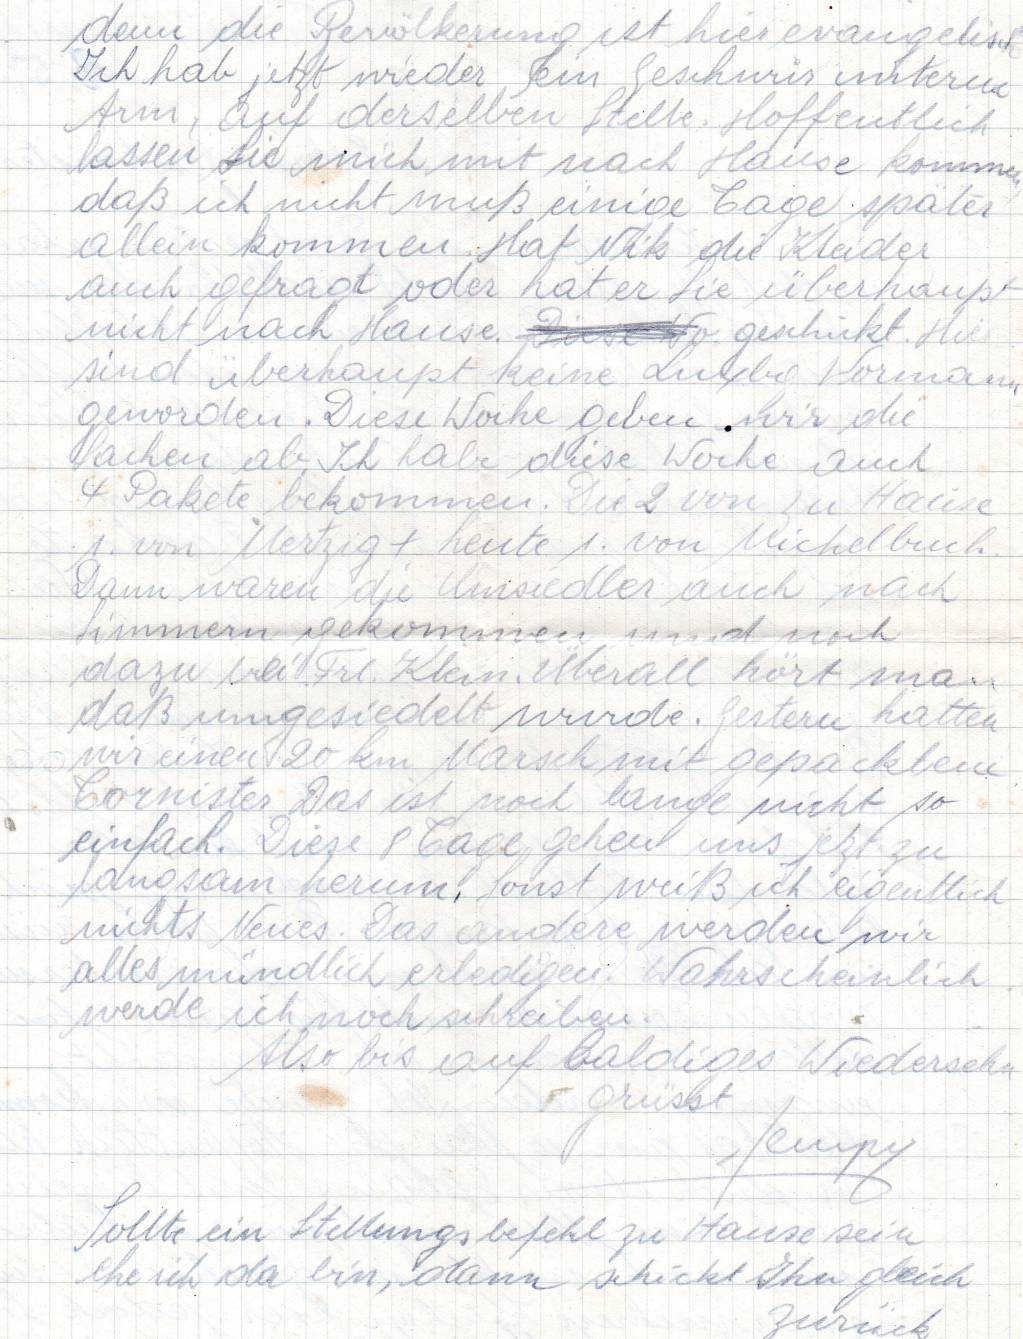 denn die Bevölkerung ist hier evangelisch
Ich hab jetzt wieder ein Geschwür unterm
Arm, auf derselben Stelle. Hoffentlich
lassen sie mich mit nach Hause kommen,
daß ich nicht muß einige Tage später
allein kommen. Hat Nik die Kleider
auch gefragt oder hat er sie überhaupt
nicht nach Hause. geschickt. Hier
sind überhaupt keine Luxbg Vormann
geworden. Diese Woche geben wir die
Sachen ab. Ich habe diese Woche auch
4 Pakete bekommen. Die 2 von zu Hause
1. von Mertzig + heute 1. von Michelbuch.
Dann waren die Umsiedler auch nach
Simmern gekommen und noch
dazu bei Frl. Klein. Überall hört man
daß umgesiedelt wurde. Gestern hatten
wir einen 20 km Marsch mit gepacktem
Tornister Das ist noch lange nicht so
einfach. Diese 8 Tage gehen uns jetzt zu
langsam herum. Sonst weiß ich eigentlich
nichts Neues. Das andere werden wir
alles mündlich erledigen. Wahrscheinlich
werde ich noch schreiben.
Also bis auf baldiges Wiedersehn
grüsst
Jempy
Sollte ein Stellungsbefehl zu Hause sein
ehe ich da bin, dann schickt Ihn gleich
zurück